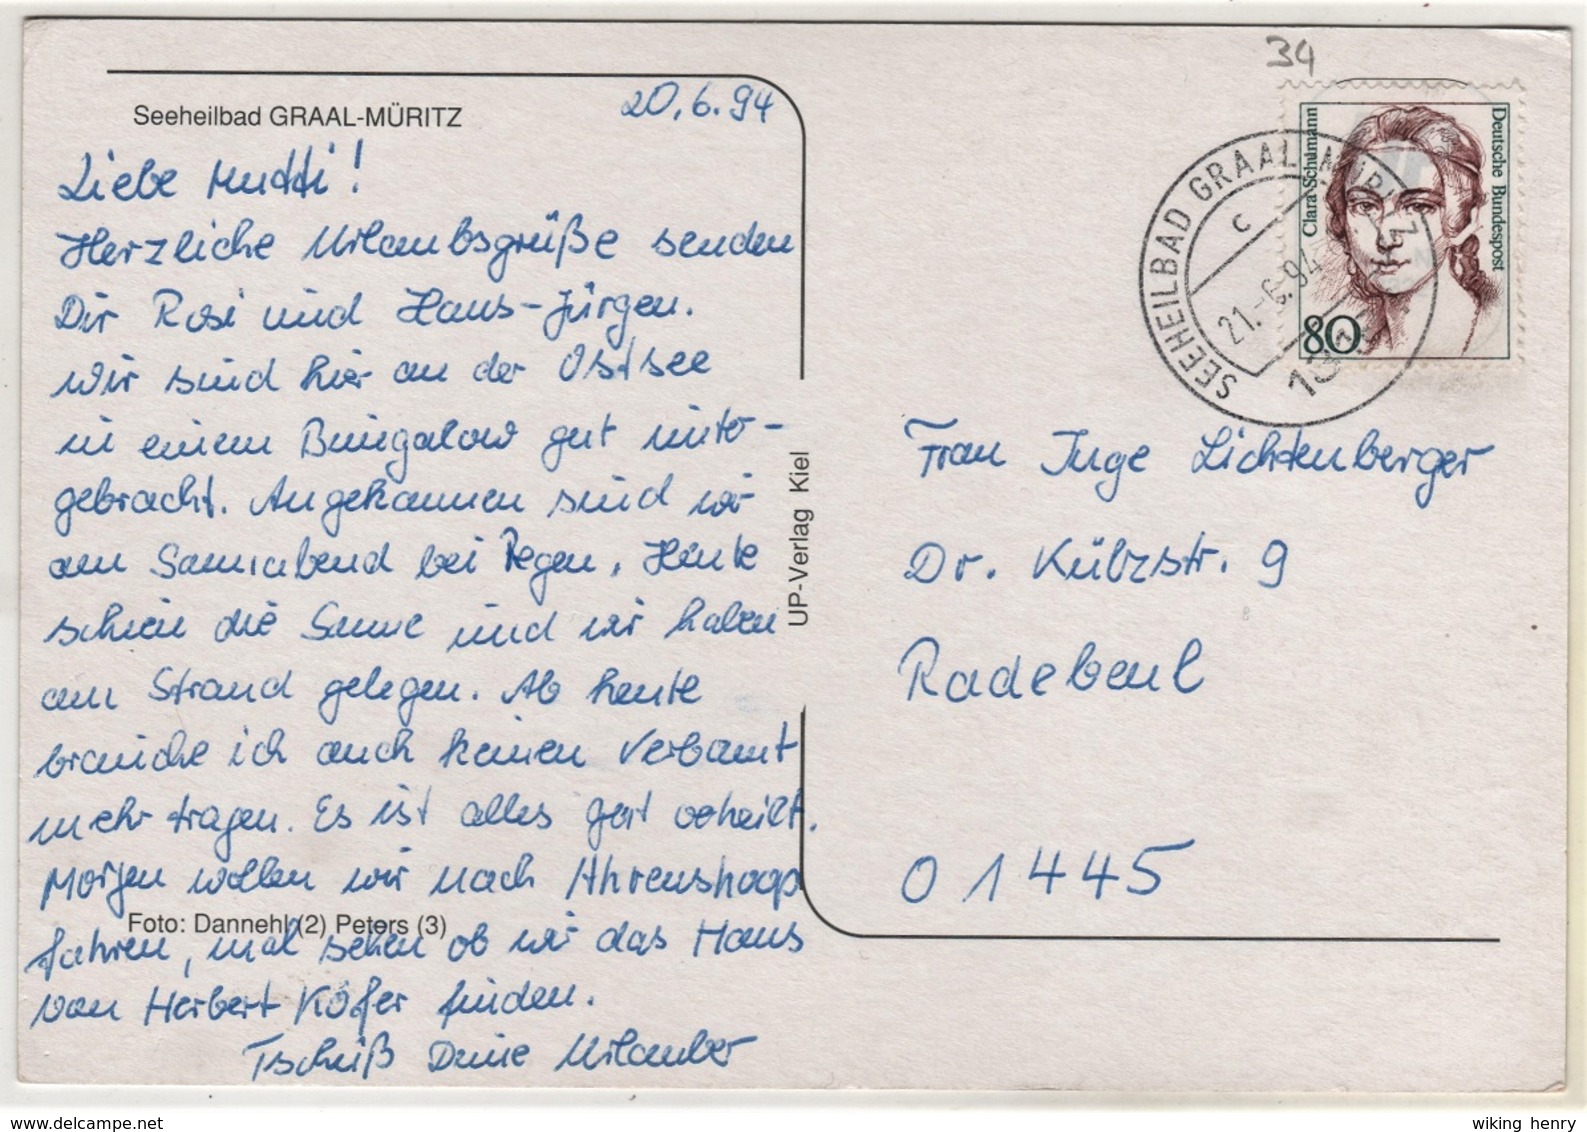 34
Seeheilbad GRAAL-MÜRITZ
20.6.94
Liebe Mutti!
Herzliche Urlaubsgrüße senden
Dir Rosi und Hans-Jürgen.
Wir sind hier an der Ostsee
in einem Bungalow gut unter-
gebracht. Angekommen sind wir
am Sonnabend bei Regen. Heute
schien die Sonne und wir haben
am Strand gelegen. Ab heute
brauche ich auch keinen Verband
mehr tragen. Es ist alles gut verheilt.
Morgen wollen wir nach Ahrenshoop
fahren, mal sehen ob wir das Haus
von Herbert Köfer finden.
Tschüß Deine Urlauber
Foto: Dannehl (2) Peters (3)
UP-Verlag Kiel
SEEHEILBAD GRAAL-MÜRITZ
c
21.-6.94
Clara Schumann
Deutsche Bundespost
80
Frau Inge Lichtenberger
Dr. Külzstr. 9
Radebeul
01445
www.delcampe.net
wiking henry